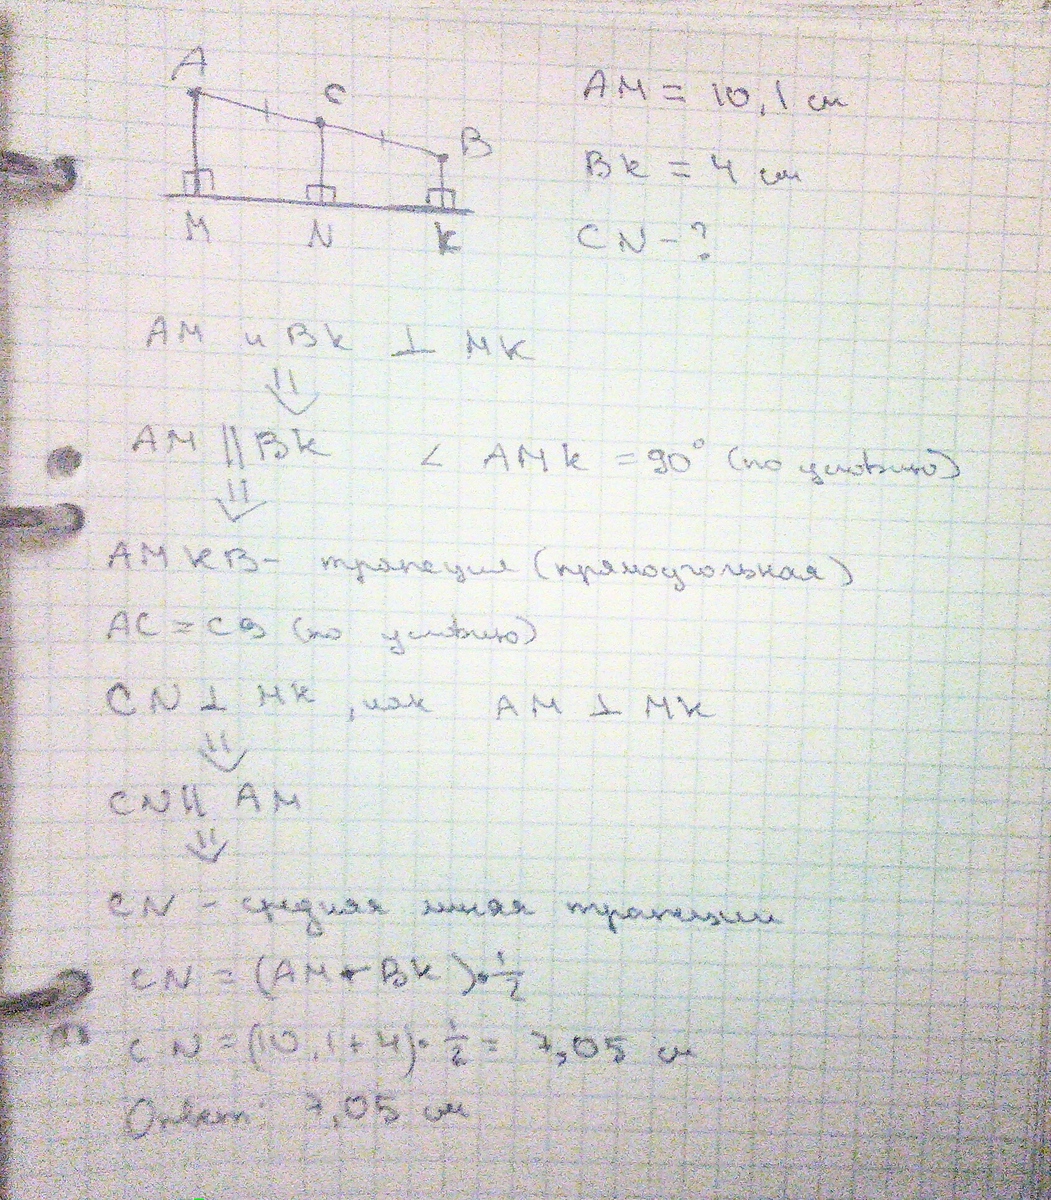 A
C
B
M N K
AM = 10,1 см
BK = 4 см
CN - ?
AM и BK ⊥ MK
⇓
AM || BK ∠ AMK = 90° (по условию)
⇓
AMKB - трапеция (прямоугольная)
AC = CB (по условию)
CN ⊥ MK, как AM ⊥ MK
⇓
CN || AM
⇓
CN - средняя линия трапеции
CN = (AM + BK) · 1/2
CN = (10,1 + 4) · 1/2 = 7,05 см
Ответ: 7,05 см